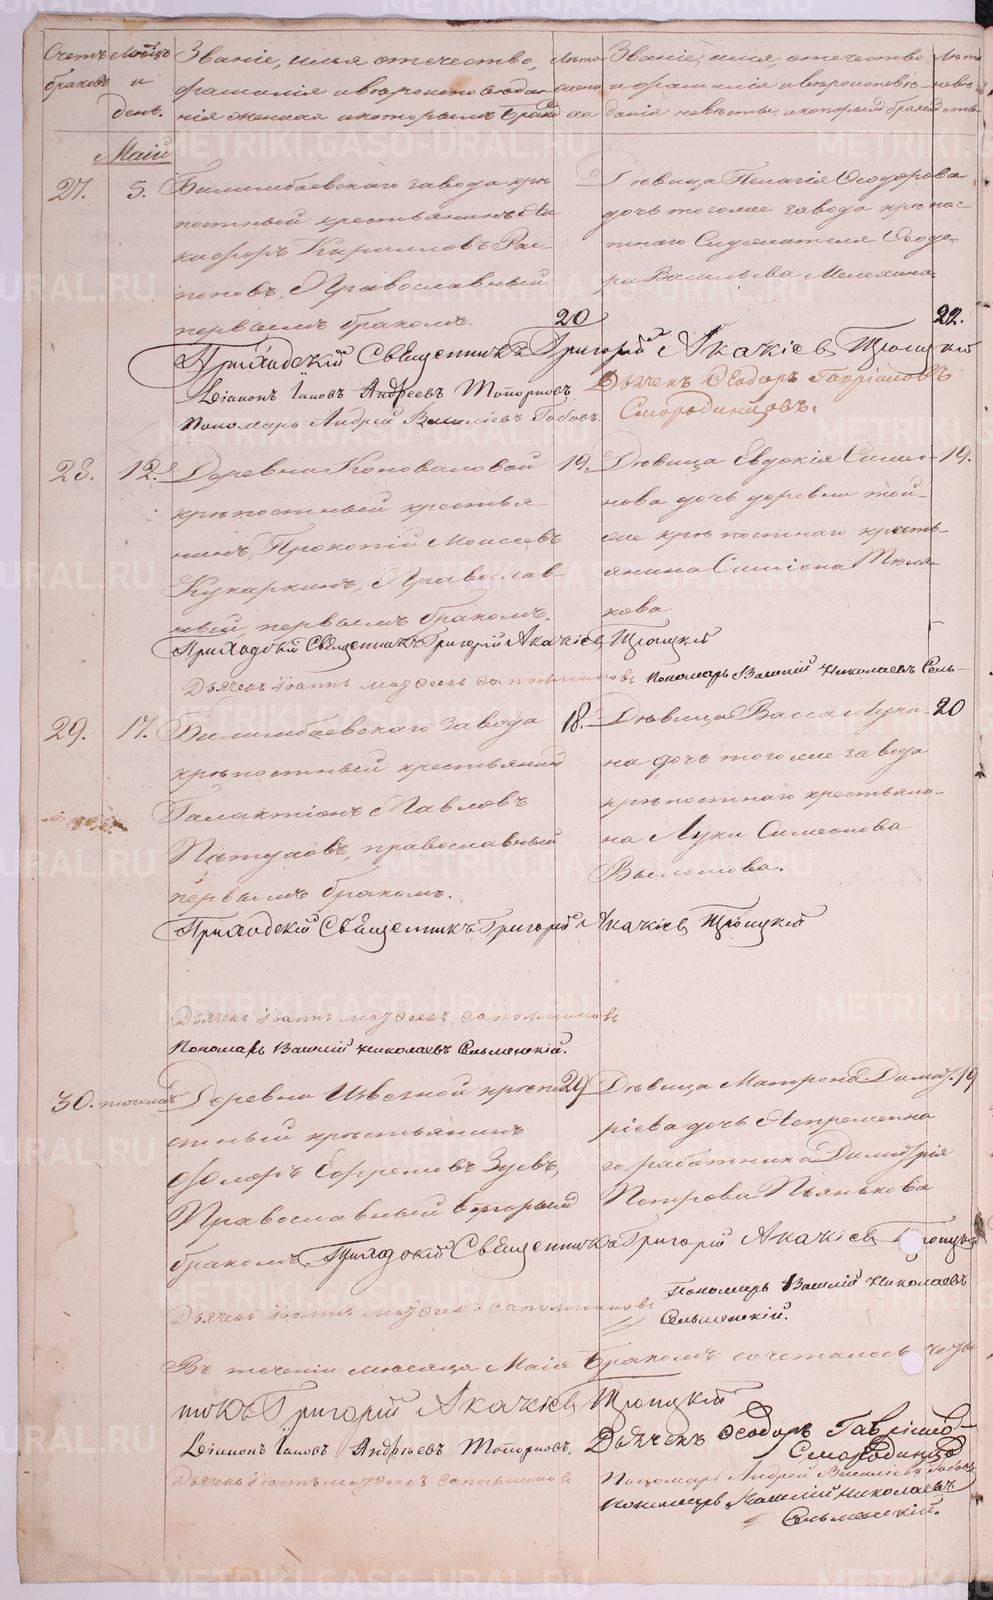 Счетъ браковъ
Мѣсяцъ и день.
Званіе, имя отечество,
фамилія и вѣроисповѣда-
нія жениха и которымъ бракомъ
Лѣта жениха
Званіе, имя, отечество
и фамилія и вѣроисповѣ-
данія невѣсты, и которым бракомъ
Лѣта невѣсты
Маій
27.
5.
Билимбаевскаго завода крѣ-
постный крестьянинъ Ни-
кифоръ Кирилловъ Рас-
поповъ, Православный
первымъ бракомъ.
20
Дѣвица Пелагія Ѳеодорова
дочь тогоже завода крѣпос-
тнаго Служителя Ѳеодо-
ра Васильева Мелехина.
22.
Приходскій Священникъ Григорій Акакіевъ Троицкій
Діаконъ Іаковъ Андреевъ Топорковъ,
Дьячекъ Ѳеодоръ Гавріиловъ
Смородинцовъ.
Пономарь Андрей Василіевъ Бобовъ.
28.
12.
Деревни Коноваловой
крѣпостный крестья-
нинъ, Прокопій Моисеевъ
Кукаркинъ, Православ-
ный, первымъ бракомъ.
19.
Дѣвица Евдокія Симео-
нова дочь деревни той-
же крѣпостнаго кресть-
янина Симеона
кова
19.
Приходскій Священникъ Григорій Акакіевъ Троицкій
Дьячекъ Іоаннъ Сапожниковъ
Пономарь Василій Николаевъ Сель-
29.
17.
Билимбаевскаго завода
крѣпостный крестьянинъ
Галактіонъ Павловъ
Пѣтуховъ, православный
первымъ бракомъ.
18.
Дѣвица Васса Луки-
на дочь тогоже завода
крѣпостнаго крестьяни-
на Луки Симеонова
20
Приходскій Священникъ Григорій Акакіевъ Троицкій
Дьячекъ Іоаннъ Сапожниковъ
Пономарь Василій Николаевъ Сельменскій.
30.
тогожъ
Деревни Извезной крѣпо-
стный крестьянинъ
Ефремовъ Зуевъ,
Православный вторымъ
бракомъ.
29
Дѣвица Матрона Димит-
ріева дочь Непременна-
го работника Димитрія
Петрова Пьянькова
19
Приходскій Священникъ Григорій Акакіевъ Троицкій
Пономарь Василій Николаевъ
Сельменскій.
Дьячекъ Іоаннъ Сапожниковъ
Въ теченіи мѣсяца Маія бракомъ сочеталось четы
Григорій Акакіевъ Троицкій
Діаконъ Іаковъ Андреевъ Топорковъ.
Дьячекъ Ѳеодоръ Гавріило-
Смородинцовъ
Дьячекъ Іоаннъ Сапожниковъ
Пономарь Андрей Василіевъ Бобовъ
Пономарь Василій Николаевъ
Сельменскій.
METRIKI.GASO-URAL.RU